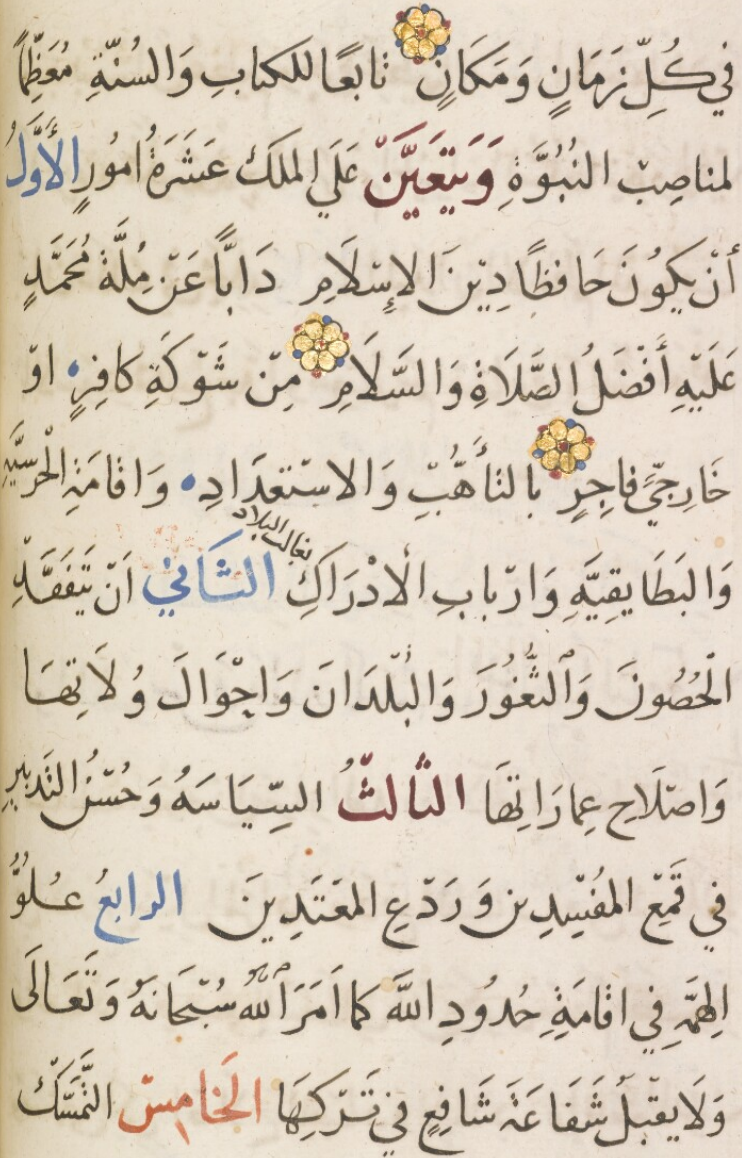 في كُلِّ زَمَانٍ وَمَكَانٍ تابعًا للكتابِ وَالسُنَّةِ مُعَظِّمًا
لمناصِبْ النُبُوَّةِ وَيَتَعَيَّنْ عَلَي الملك عَشَرَةُ امُورٍ الأَوَّلُ
أنْ يكوُنَ حَافظًا دِيْنَ الإسْلَامِ دَابًّا عَنْ مِلَّة مُحَمَّدٍ
عَلَيْهِ أَفْضَلُ الصَّلَاةِ وَالسَّلَامِ مِنْ شَوْكَةِ كافِرٍ اوْ
خَارِجيٍّ فاجِرٍ بالتأَهُّبْ وَالاسْتعدَادِ وَاقامَةِ الْحرسيَّهِ
وَالبَطَايِقيَّهِ وَارْبابِ الادْرَاكِ بغالب البلاد الثَاني انْ يَتَفَقَّدِ
الْحُصُونَ وَالثُّغوُرَ وَالْبُلْدَانَ وَاحْوَالَ وُلَاتِهَا
وَاصْلَاحِ عِمارَاتِهَا الثالثْ السِّيَاسَهُ وَحُسْنُ التَدبيرِ
في قَمْعِ المُفْسِدِين وَرَدْعِ المعْتَدِينَ الرابعُ عُلوُّ
الهِمَّهِ في اقامَةِ حُدُودِ اللَّه كما اَمَرَ اللهُ سُبْحَانَهُ وَتَعَالَى
وَلَا يقبَلْ شَفَاعَةَ شَافِعٍ في تَرْكِهَا الخَامِسْ التَّمَسُّك